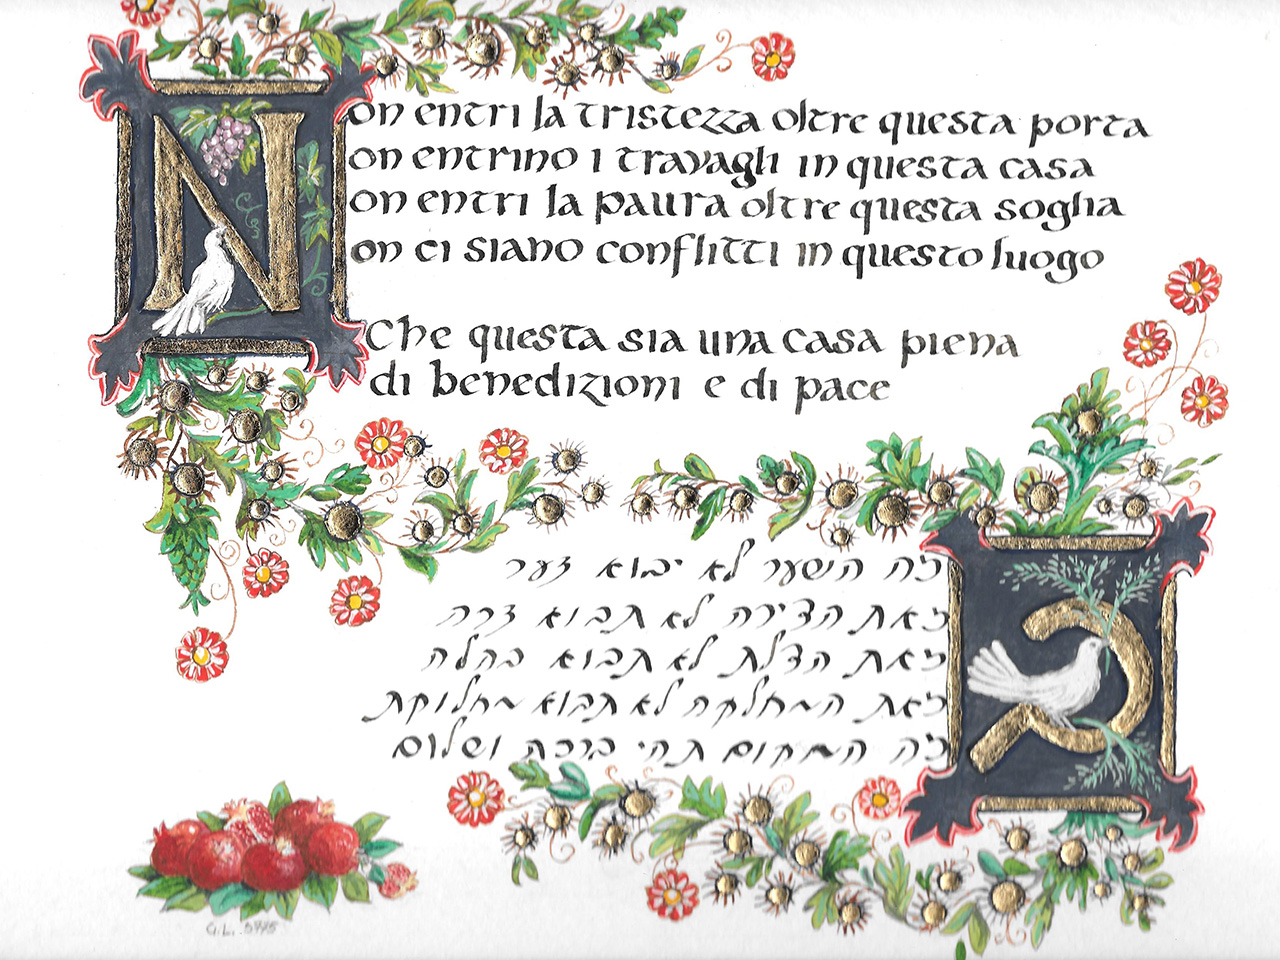 Non entri la tristezza oltre questa porta
on entrino i travagli in questa casa
on entri la paura oltre questa soglia
on ci siano conflitti in questo luogo
Che questa sia una casa piena
di benedizioni e di pace
בזה השער לא יבוא צער
זאת הדירה לא תבוא צרה
זאת הדלת לא תבוא בהלה
זאת המחלקה לא תבוא מחלוקת
זה המקום תהי ברכה ושלום
G.L. 5775